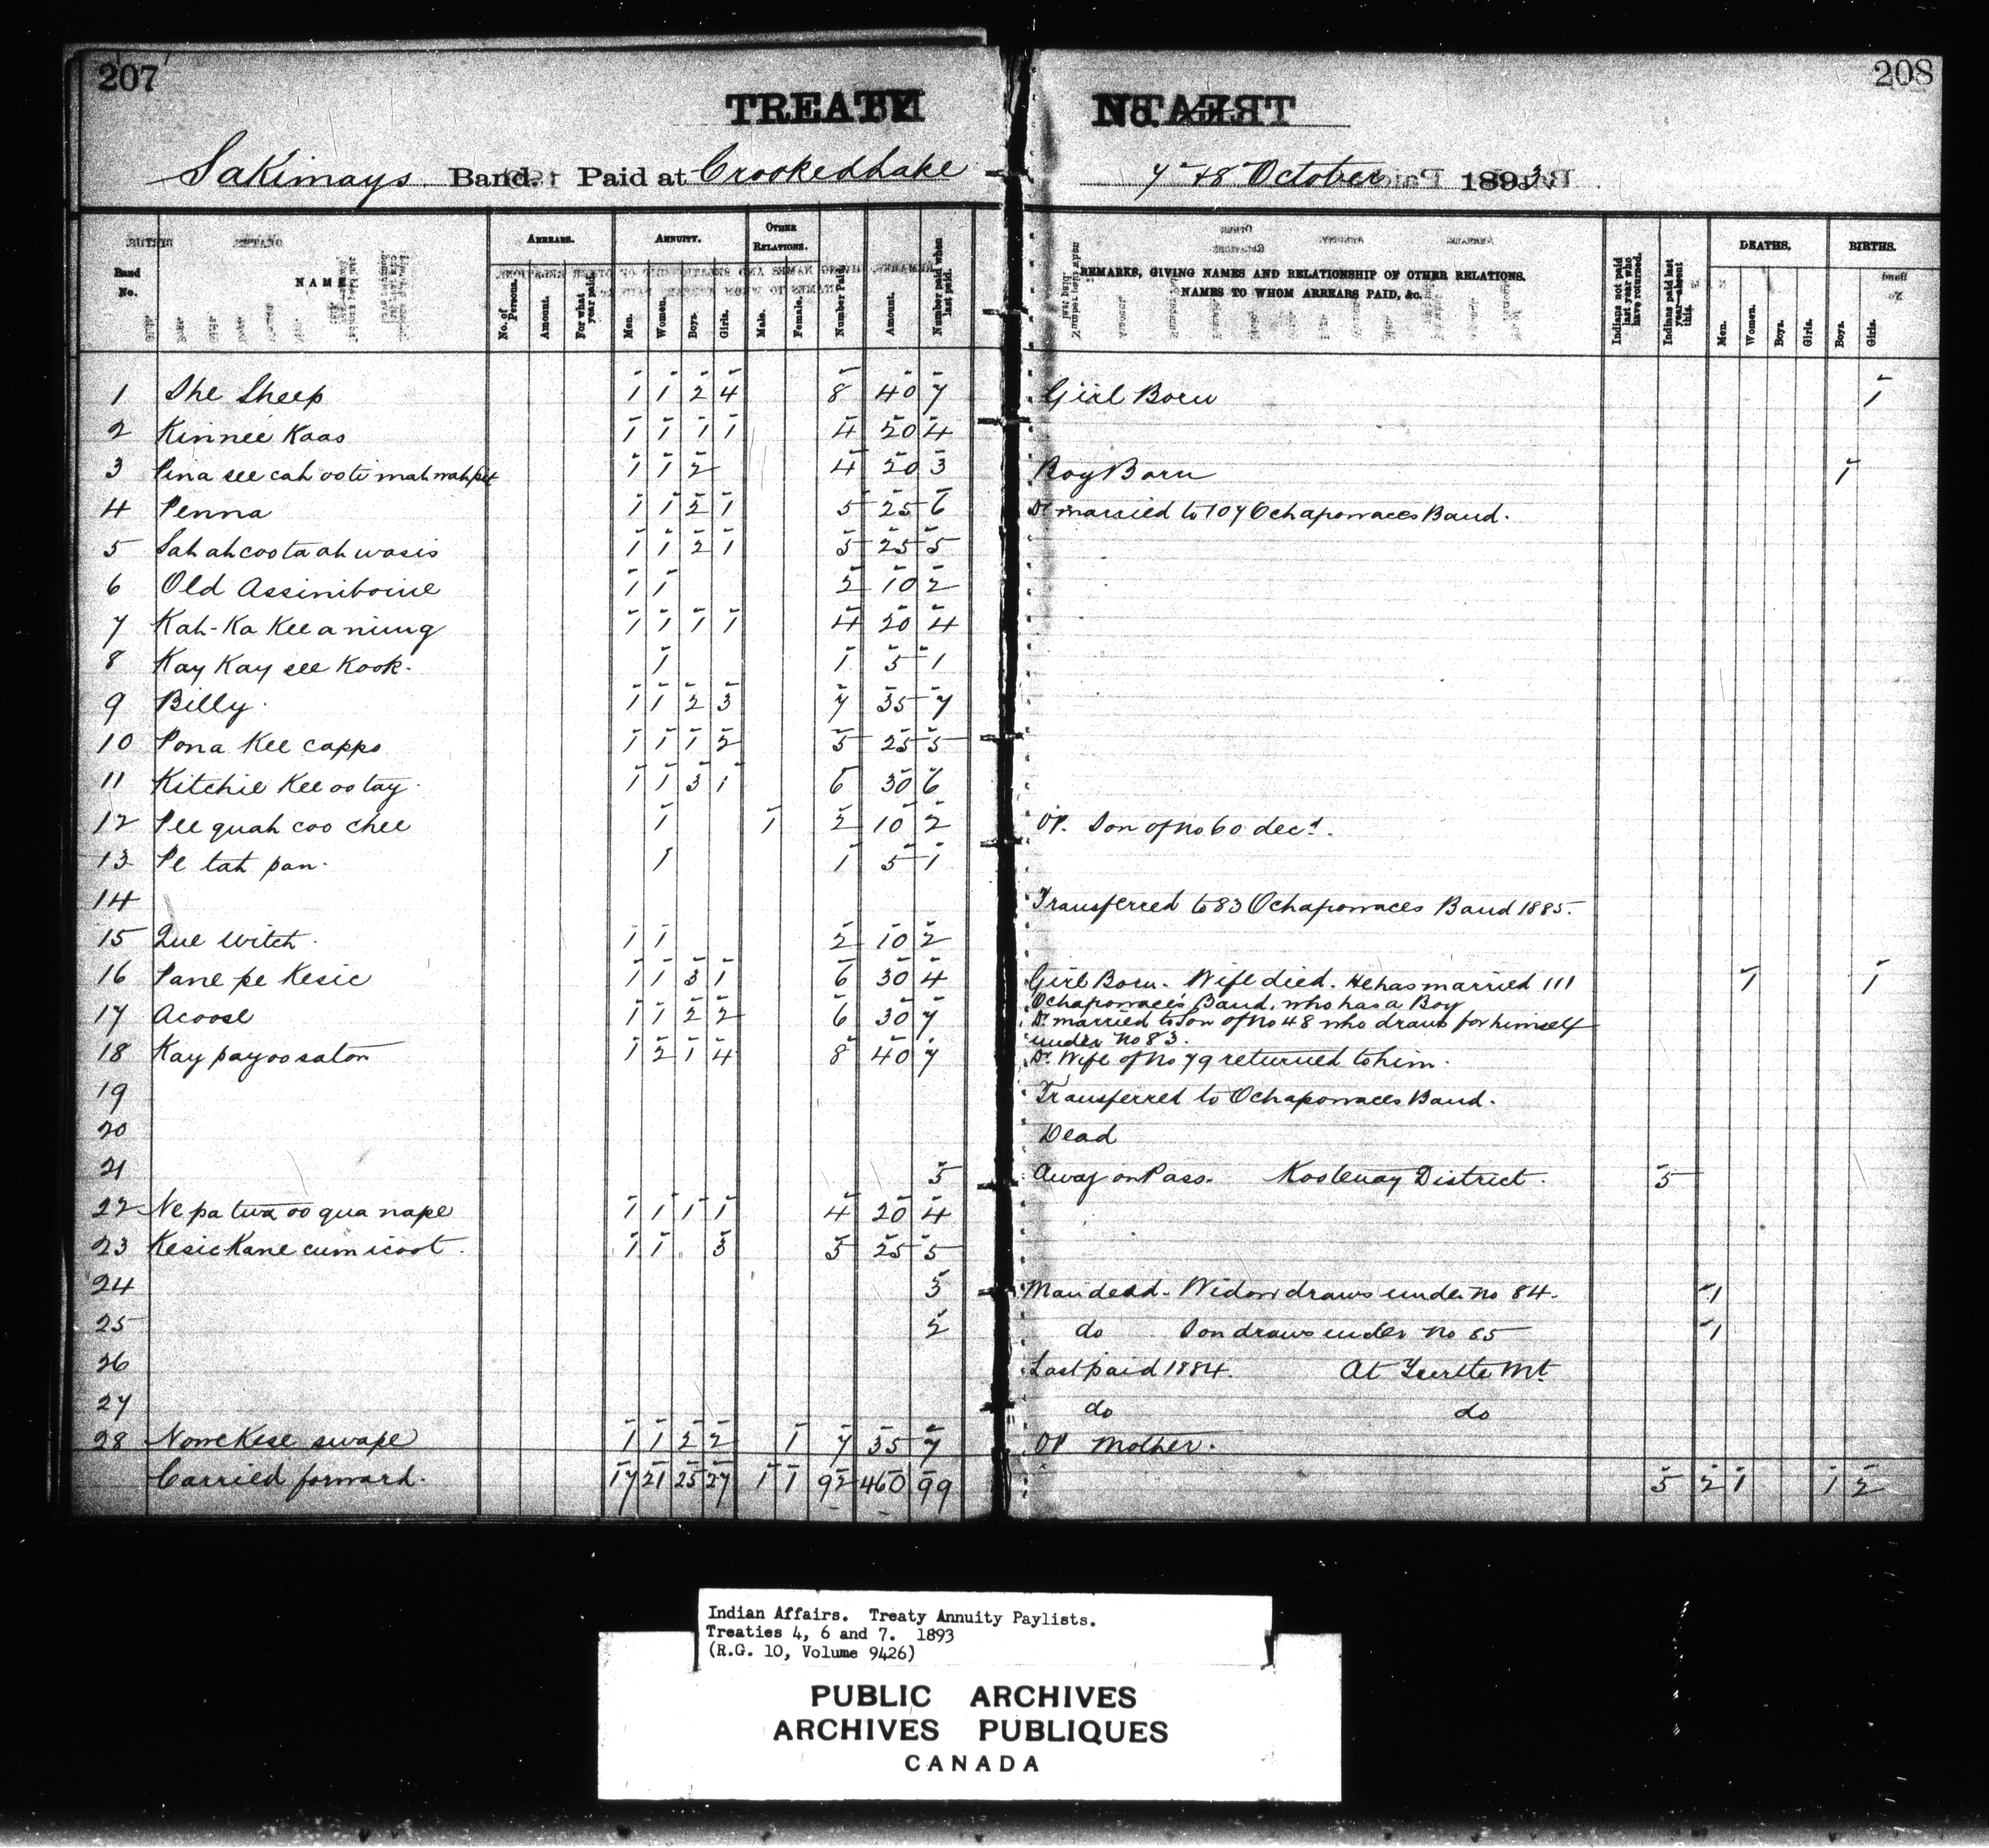 207
208
TREATY
No.
Sakimays Band. Paid at Crooked Lake
7 & 8 October 1893.
Band No.
NAME
ARREARS.
No. of Persons.
Amount.
For what year paid.
ANNUITY.
Men.
Women.
Boys.
Girls.
OTHER RELATIONS.
Male.
Female.
Number Paid.
Amount.
Number paid when last paid.
REMARKS, GIVING NAMES AND RELATIONSHIP OF OTHER RELATIONS.
NAMES TO WHOM ARREARS PAID, &c.
Indians not paid last year who have returned.
Indians paid last year—absent this.
DEATHS.
Men.
Women.
Boys.
Girls.
BIRTHS.
Boys.
Girls.
1 She Sheep 1 1 2 4 8 40 7 Girl Born 1
2 Kinnee Kaas 1 1 1 1 4 20 4
3 Pina see cah oote mah mah pet 1 1 2 4 20 3 Boy Born 1
4 Penna 1 1 2 1 5 25 6 Dr married to 107 Ochapowaces Band.
5 Sah ah coota ah wasis 1 1 2 1 5 25 5
6 Old Assiniboine 1 1 2 10 2
7 Kah-Ka Kee a nung 1 1 1 1 4 20 4
8 Kay Kay see Kook. 1 1 5 1
9 Billy 1 1 2 3 7 35 7
10 Pona Kee capps 1 1 1 2 5 25 5
11 Kitchie Kee oo tay 1 1 3 1 6 30 6
12 Pee quah coo chee 1 1 2 10 2 OR. Son of No 60 decd.
13 Pe tah pan 1 1 5 1
14 Transferred to 83 Ochapowaces Band 1885.
15 Que witch 1 1 2 10 2
16 Pane pe Kesic 1 1 3 1 6 30 4 Girl Born. Wife died. He has married 111 1 1
Ochapowaces Band, who has a Boy
17 Acoose 1 1 2 2 6 30 7 Dr married to Son of No 48 who draws for himself
under No 83.
18 Kay pay oo saton 1 2 1 4 8 40 7 Dr Wife of No 79 returned to him.
19 Transferred to Ochapowaces Band.
20 Dead
21 5 Away on Pass. Kootenay District. 5
22 Ne pa twa oo qua nape 1 1 1 1 4 20 4
23 Kesic Kane cum icoot 1 1 3 5 25 5
24 3 Man dead. Widow draws under No 84. 1
25 2 do Son draws under No 85 1
26 Last paid 1884. At Turtle Mt
27 do do
28 Nowekese swape 1 1 2 2 1 7 35 7 OR Mother.
Carried forward. 17 21 25 27 1 1 92 460 99 5 2 1 1 2
Indian Affairs. Treaty Annuity Paylists.
Treaties 4, 6 and 7. 1893
(R.G. 10, Volume 9426)
PUBLIC ARCHIVES
ARCHIVES PUBLIQUES
CANADA